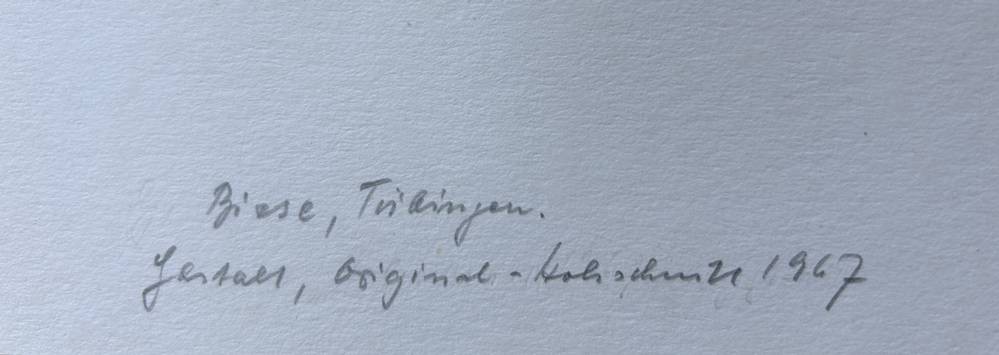 Biese, Tübingen.
Gestalt, Original-Holzschnitt 1967